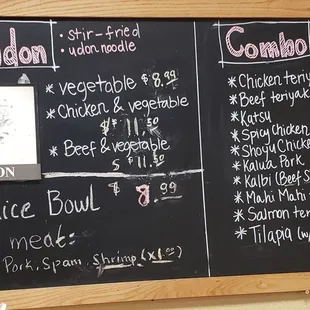 udon
• stir-fried
• udon noodle
* vegetable $8.99
* Chicken & vegetable
$ 11.50
* Beef & vegetable
$ 11.50
ON
ice Bowl $ 8.99
meat:
Pork, Spam, Shrimp (x1.00)
Combo
* Chicken teriy
* Beef teriyak
* Katsu
* Spicy Chicken
* Shoyu Chicke
* Kalua Pork
* Kalbi (Beef S
* Mahi Mahi
* Salmon ter
* Tilapia (w/